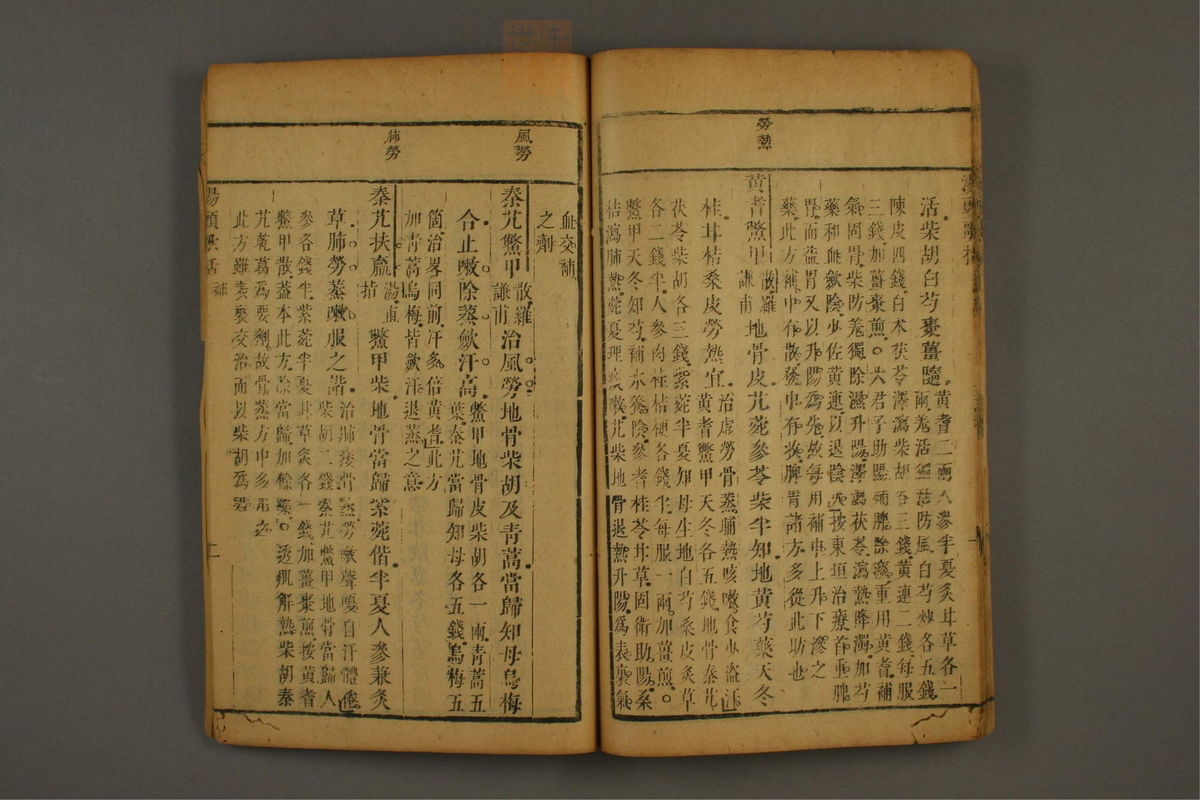 湯頭歌括
勞熱
活柴胡白芍棗薑隨。黄耆二兩人參半夏炙甘草各一
兩羌活獨活防風白芍炒各五錢
陳皮四錢白朮茯苓澤瀉柴胡各三錢黄連二錢每服
三錢加薑棗煎。六君子助陽補脾除痰重用黄耆補
氣固胃柴防羌獨除濕升陽澤瀉茯苓瀉熱降濁加芍
藥和血斂陰少佐黄連以退陰火按東垣治療首重脾
胃而益胃又以升陽爲先故每用補中上升下滲之
藥此方補中有散發中有收脾胃諸方多從此仿也
黄耆鱉甲散羅謙甫地骨皮艽菀參苓柴半知地黄芍藥天冬
桂甘桔桑皮勞熱宜。治虛勞骨蒸晡熱咳嗽食少盗汗
黄耆鱉甲天冬各五錢地骨秦艽
茯苓柴胡各三錢紫菀半夏知母生地白芍桑皮炙草
各二錢半人參肉桂桔梗各錢半每服一兩加薑煎。
鱉甲天冬知芍補水養陰參耆桂苓甘草固衛助陽桑
桔瀉肺熱菀夏理痰嗽艽柴地骨退熱升陽爲表裏氣
血交補
之劑
風勞
秦艽鱉甲散羅謙甫治風勞地骨柴胡及青蒿當歸知母烏梅
合止嗽除蒸斂汗高。鱉甲地骨皮柴胡各一兩青蒿五
葉秦艽當歸知母各五錢烏梅五
箇治畧同前汗多倍黄耆此方
加青蒿烏梅皆斂汗退蒸之意
肺勞
秦艽扶羸湯直指鱉甲柴地骨當歸紫菀偕半夏人參兼炙
草肺勞蒸嗽服之諧。治肺痿骨蒸勞嗽聲嗄自汗體倦
柴胡二錢秦艽鱉甲地骨當歸人
參各錢半紫菀半夏甘草炙各一錢加薑棗煎按黄耆
鱉甲散蓋本此方除當歸加餘藥。透肌解熱柴胡秦
艽乾葛爲要劑故骨蒸方中多用之
此方雖表裏交治而以柴胡爲君
湯頭歌括 補